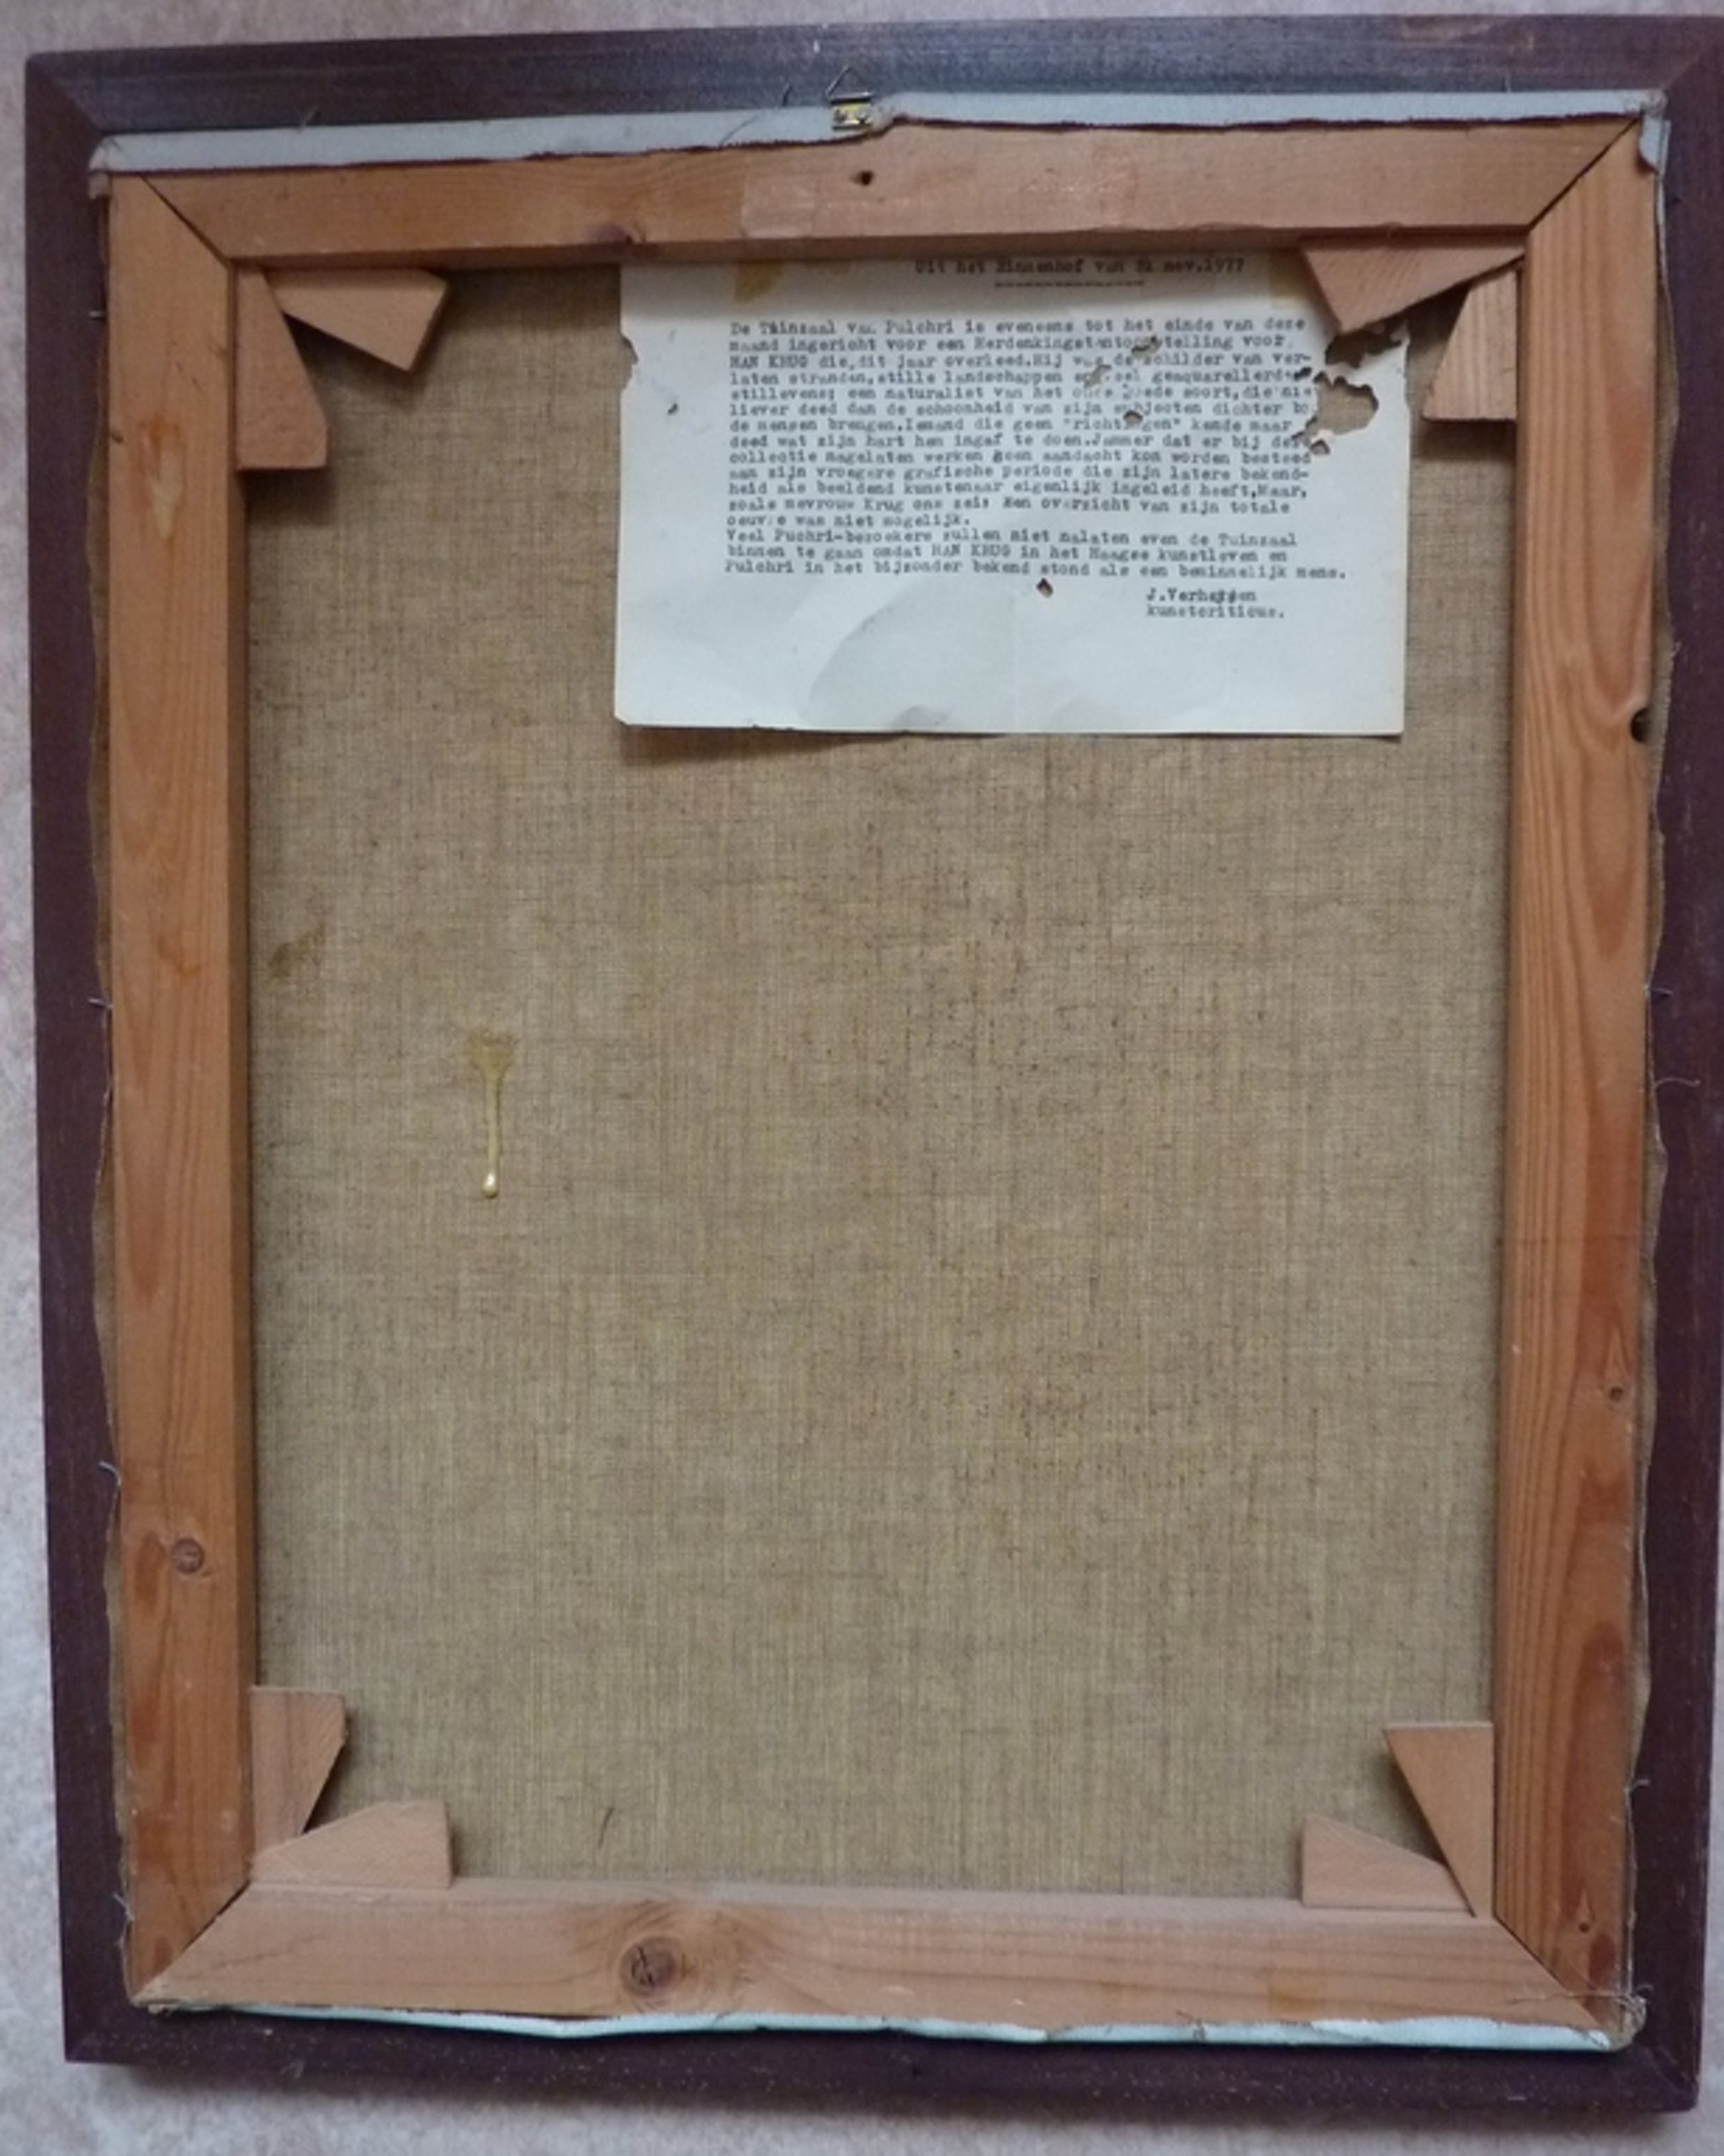 Uit het Binnenhof van 21 nov.1977
De Tuinzaal van Pulchri is eveneens tot het einde van deze
maand ingericht voor een Herdenkingstentoonstelling voor
HAN KRUG die,dit jaar overleed.Hij was de schilder van ver-
laten stranden,stille landschappen en veel geaquarellerde
stillevens; een naturalist van het oude goede soort,die nie
liever deed dan de schoonheid van zijn subjecten dichter bo
de mensen brengen.Iemand die geen "richtingen" kende maar
deed wat zijn hart hem ingaf te doen.Jammer dat er bij deze
collectie nagelaten werken geen aandacht kon worden besteed
aan zijn vroegere grafische periode die zijn latere bekend-
heid als beeldend kunstenaar eigenlijk ingeleid heeft,Maar,
zoals mevrouw Krug ons zei: Een overzicht van zijn totale
oeuvre was niet mogelijk.
Veel Puchri-bezoekers zullen niet nalaten even de Tuinzaal
binnen te gaan omdat HAN KRUG in het Haagse kunstleven en
Pulchri in het bijzonder bekend stond als een beminnelijk mens.
kunstcriticus.